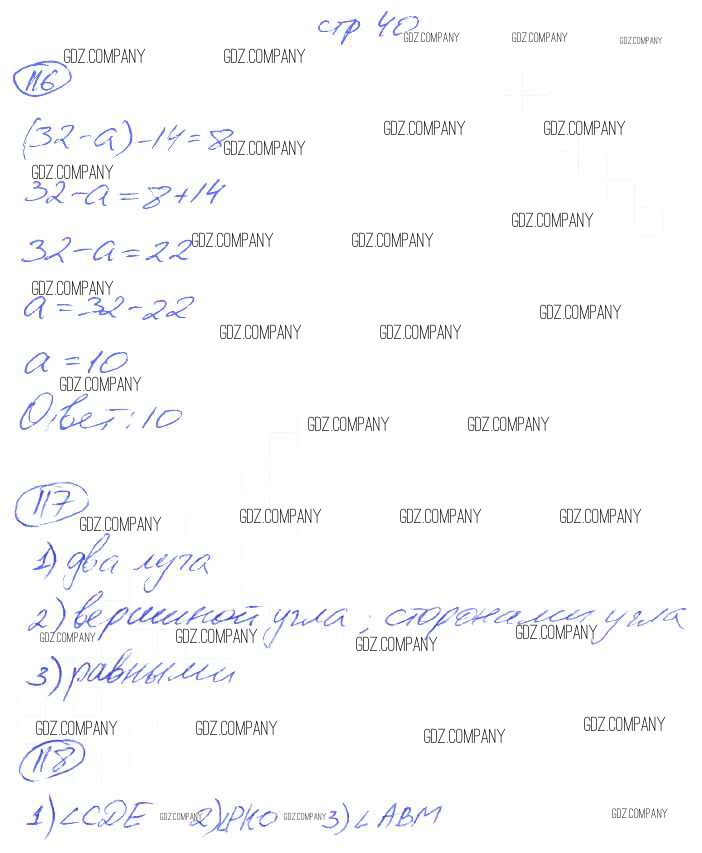 стр 40
GDZ.COMPANY GDZ.COMPANY GDZ.COMPANY
GDZ.COMPANY GDZ.COMPANY
116
GDZ.COMPANY GDZ.COMPANY
(32-a)-14=8
GDZ.COMPANY
GDZ.COMPANY
32-a=8+14
GDZ.COMPANY
GDZ.COMPANY GDZ.COMPANY
32-a=22
GDZ.COMPANY
a=32-22
GDZ.COMPANY
GDZ.COMPANY GDZ.COMPANY
a=10
GDZ.COMPANY
Ответ: 10
GDZ.COMPANY GDZ.COMPANY
117
GDZ.COMPANY GDZ.COMPANY GDZ.COMPANY GDZ.COMPANY
1) два луча
2) вершиной угла; сторонами угла
GDZ.COMPANY GDZ.COMPANY GDZ.COMPANY GDZ.COMPANY
3) равными
GDZ.COMPANY GDZ.COMPANY GDZ.COMPANY GDZ.COMPANY
118
1) ∠CDE 2) ∠PKO 3) ∠ABM
GDZ.COMPANY GDZ.COMPANY GDZ.COMPANY